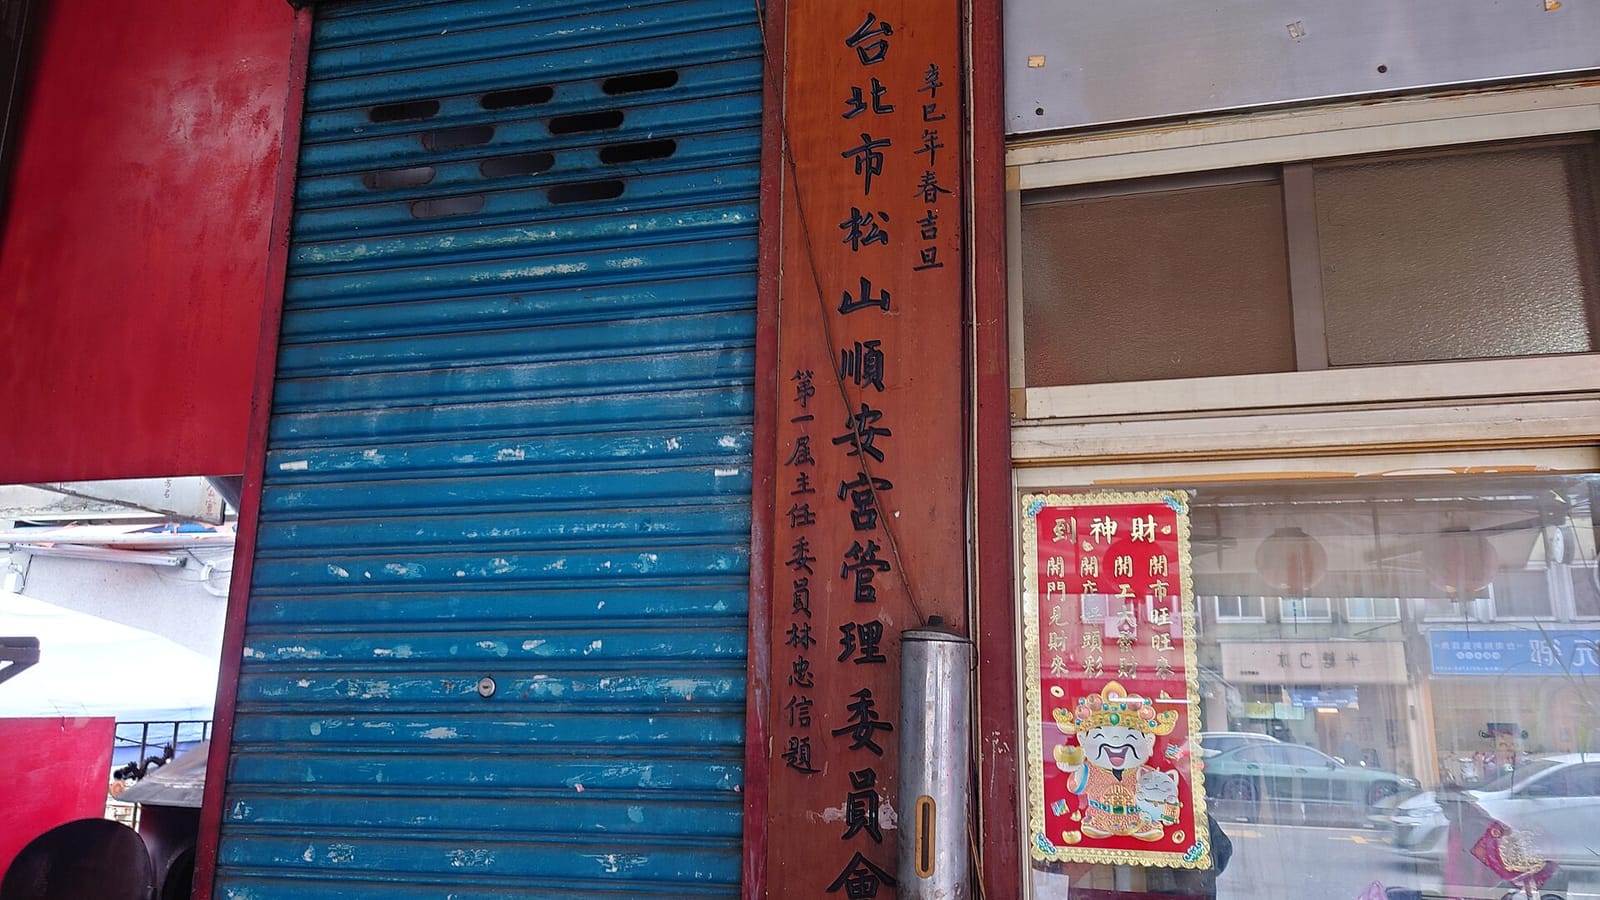 辛巳年春吉旦
台北市松山順安宮管理委員會
第一屆主任委員林忠信題
財神到
開市旺旺來
開工大發財
開店好頭彩
開門見財來